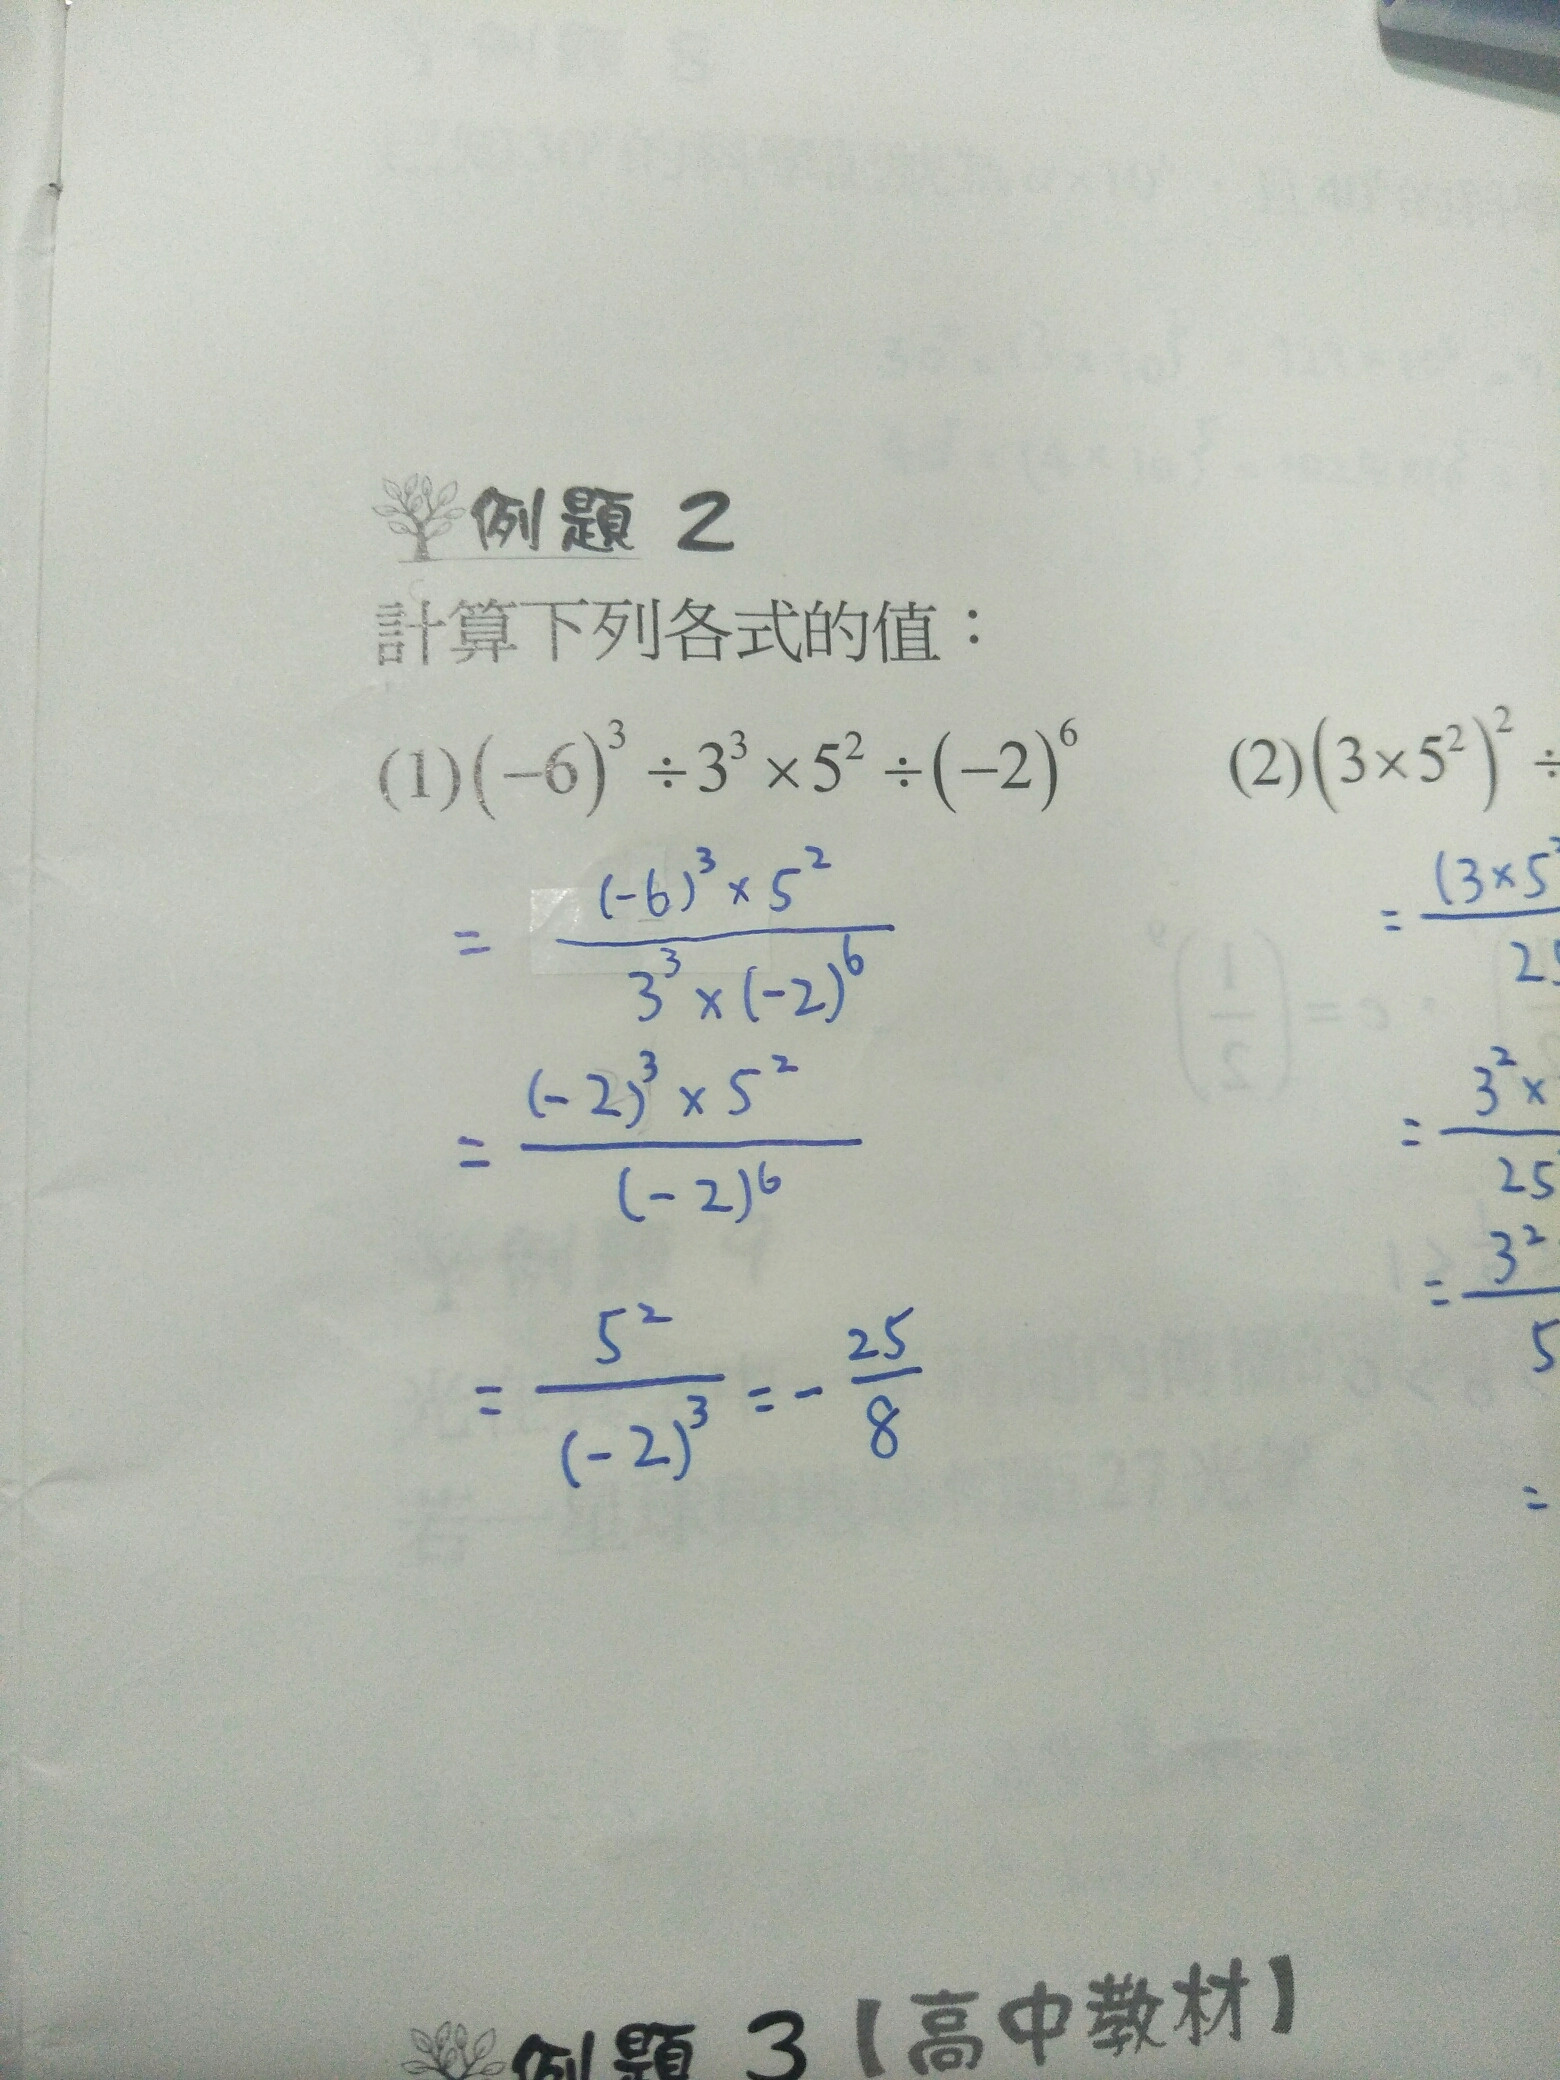 例題 2
計算下列各式的值：
(1)(−6)³ ÷ 3³ × 5² ÷ (−2)⁶
= (-6)³ × 5² / 3³ × (-2)⁶
= (-2)³ × 5² / (-2)⁶
= 5² / (-2)³ = - 25 / 8
(2)(3×5²)² ÷
= (3×5² / 25
= 3² × / 25
= 3² / 5
=
例題 3【高中教材】